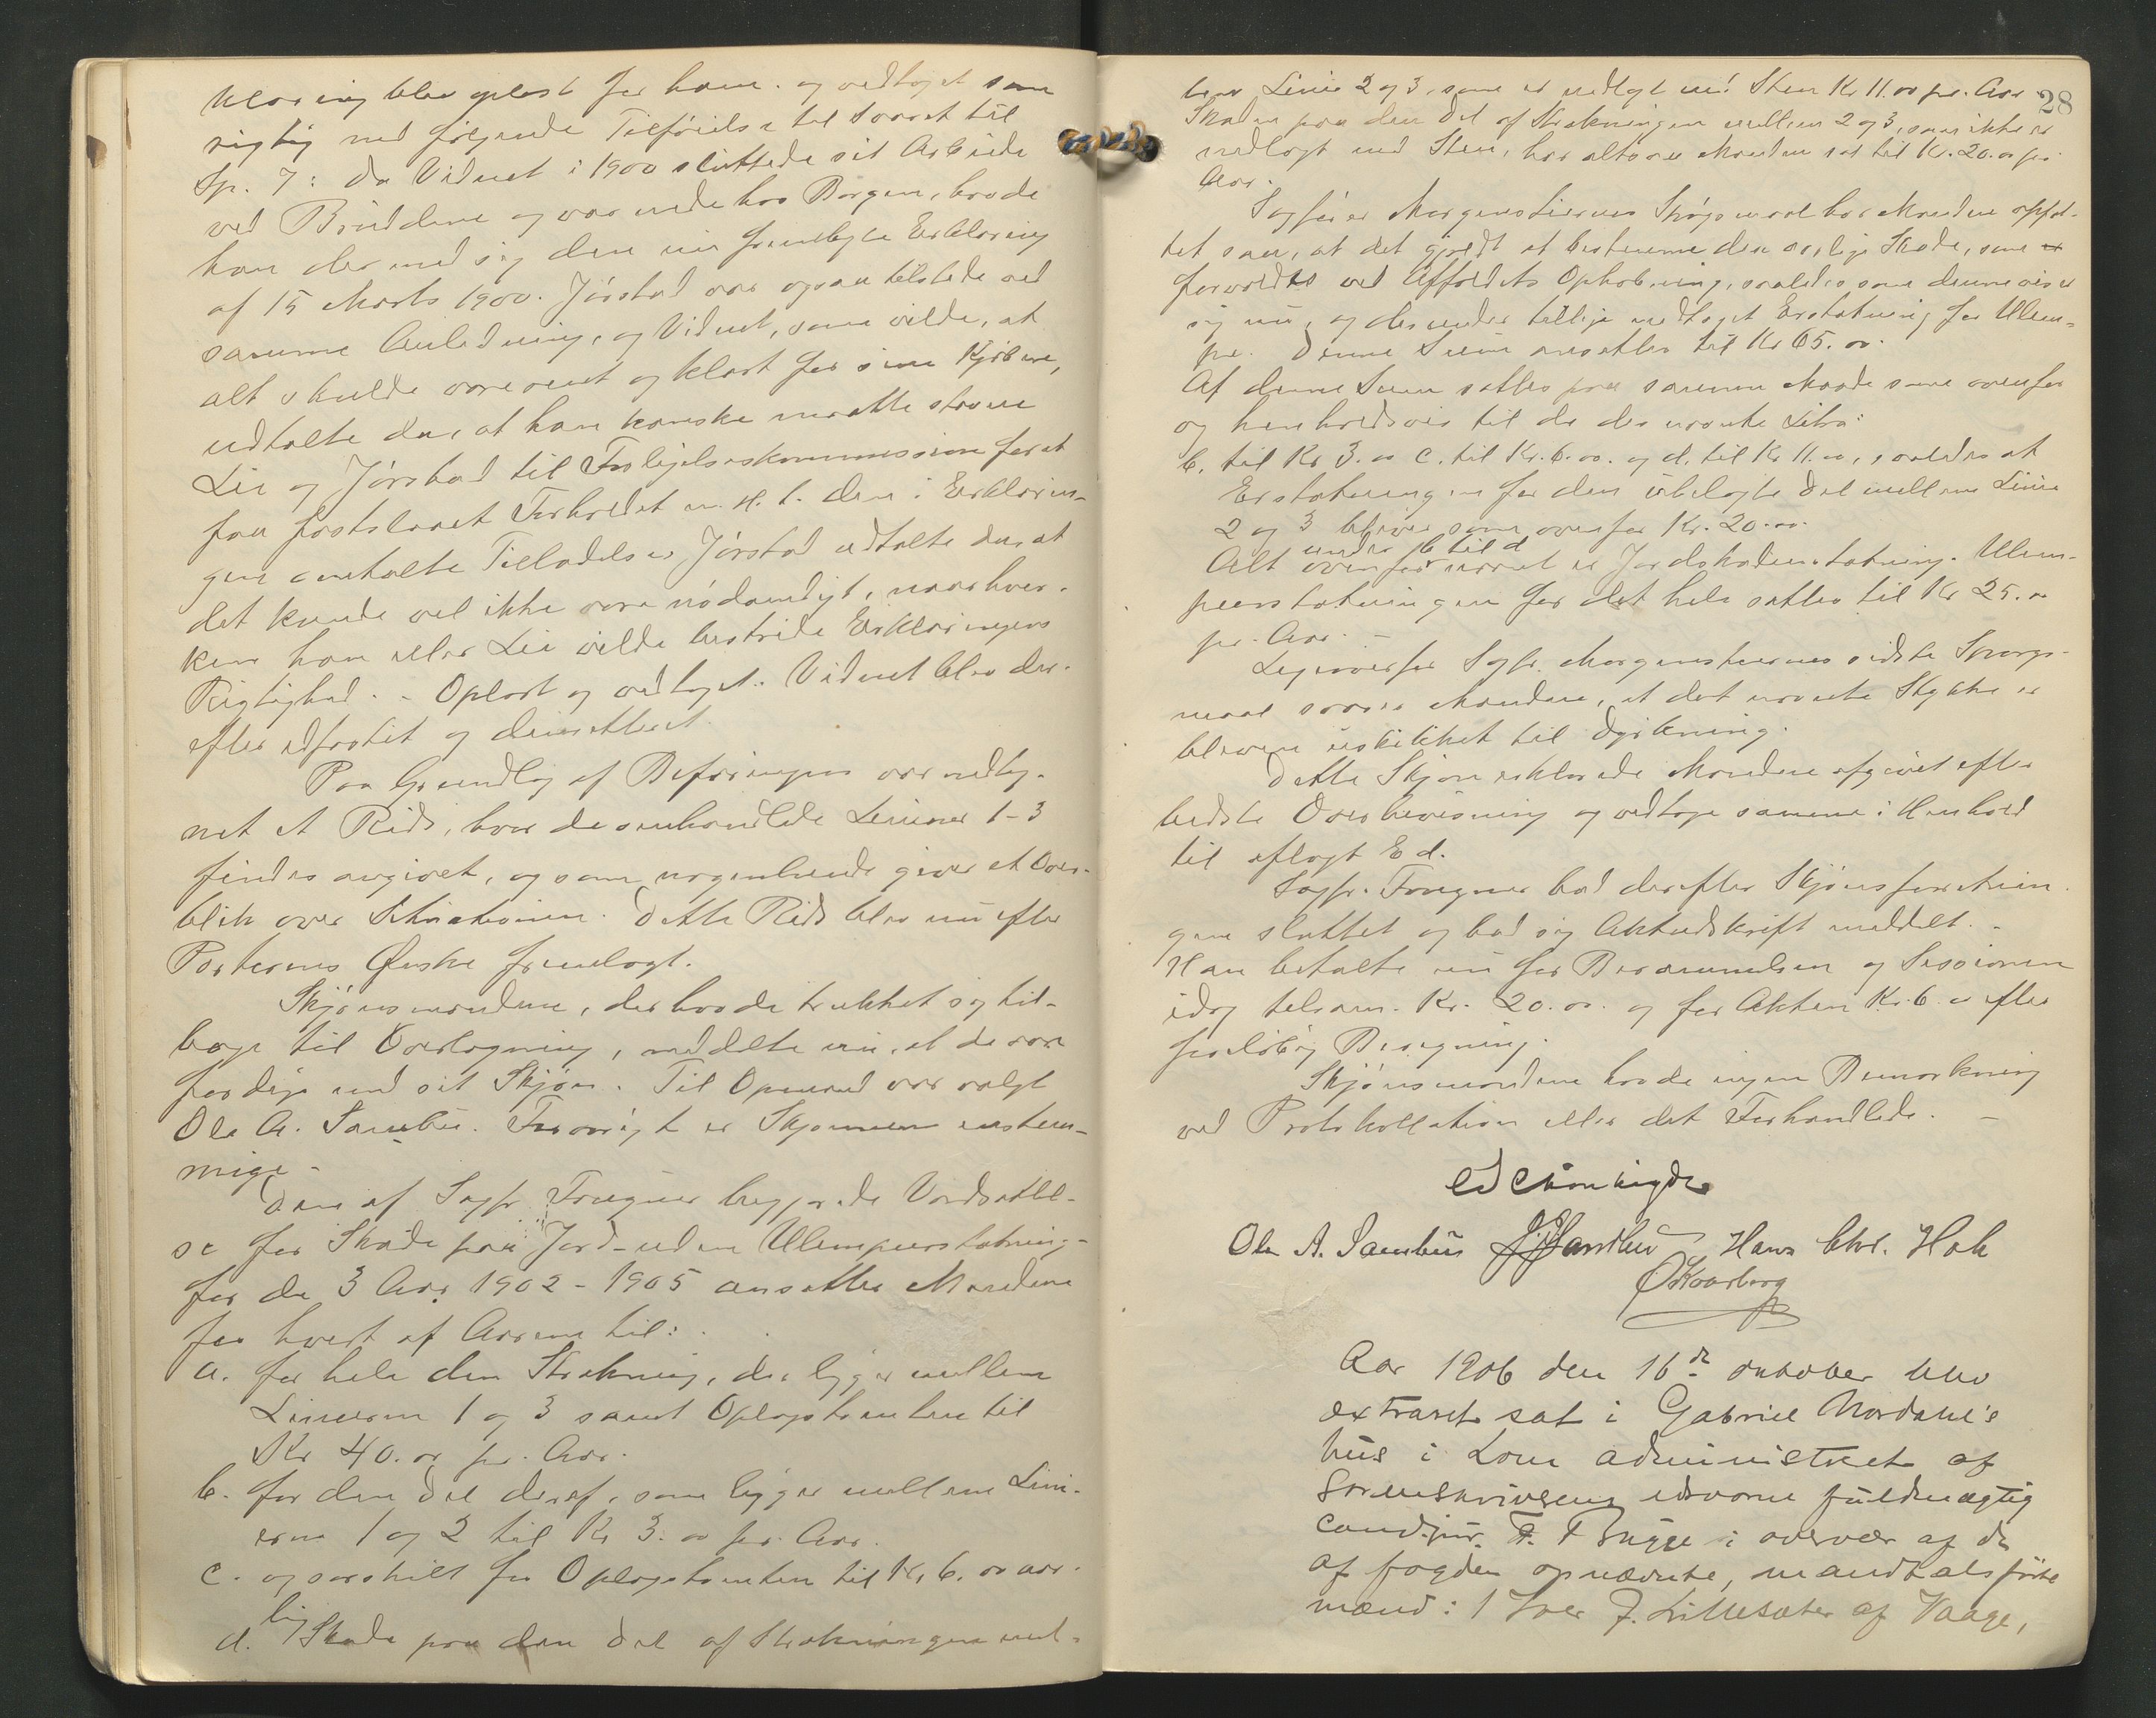 klæring blev oplæst for ham og vedtaget som
rigtig med følgende Tilføielse til Svaret til
Sp. 7: Da Vidnet i 1900 sluttede sit Arbeide
ved Bruddene og var nede hos Borgen, havde
han der med sig den nu fremlagte Erklæring
af 15 Marts 1900. Jørstad var ogsaa tilstede ved
samme Anledning, og Vidnet, som vilde, at
alt skulde være rent og klart for sine Kjøbere,
udtalte da, at han kanske maatte stævne
Lie og Jørstad til Forligelseskommission for at
faa fastslaaet Forholdet m. H. t. den i Erklærin-
gen omtalte Tilladelse. Jørstad udtalte da, at
det kunde vel ikke være nødvendigt, naar hver-
ken han eller Lie vilde bestride Erklæringens
Rigtighed. - Oplæst og vedtaget. Vidnet blev der-
efter edfæstet og dimitteret.
Paa Grundlag af Befaringen var nedteg-
net et Rids, hvor de omhandlede Linier 1-3
findes angivet, og som nogenlunde giver et Over-
blik over Situationen. Dette Rids blev nu efter
Parternes Ønske fremlagt.
Skjønsmændene, der havde trukket sig til-
bage til Overlægning, meddelte nu, at de var
færdige med sit Skjøn. Til Opmand var valgt
Ole A. Sambu. Forøvrigt er Skjønnem enstem-
mige.
Den af Sagfr. Frugner begjærede Værdsættel-
se for Skade paa Jord - uden Ulempeerstatning -
for de 3 Aar 1902 - 1905 ansætter Mændene
for hvert af Aarene til:
a. for hele den Strækning, der ligger mellem
Linierne 1 og 3 samt Oplagstomten til
Kr 40.00 pr. Aar.
b. for den Del deraf, som ligger mellem Lini-
erne 1 og 2 til Kr 3.00 pr. Aar.
c. og særskilt for Oplagstomten til Kr. 6.00 aar-
lig
d. Skade paa den Del af Strækningen mel-
28
lem Linie 2 og 3, som er nedlagt med Sten Kr 11.00 pr. Aar
Skaden paa den Del af Strækningen mellem 2 og 3, som ikke er
nedlagt med Sten, har altsaa Mændene sat til Kr. 20.00 pr.
Aar.
Sagfører Morgenstiernes Spørgsmaal har Mændene opfat-
tet saa, at det gjældt at bestemme den aarlige Skade, som er
forvoldtes ved Affaldets Ophobning, saaledes som denne viser
sig nu, og derunder tillige medtaget Erstatning for Ulem-
pe. Denne Sum ansættes til Kr 65.00.
Af denne Sum sættes paa samme Maade som ovenfor
og henholdsvis til de der nævnte Litra:
b. til Kr 3.00 c. til Kr. 6.00. og d. til Kr 11.00, saaledes at
Erstatningen for den ubelagte Del mellem Linie
2 og 3 bliver som ovenfor Kr. 20.00.
under b til d
Alt ovenfor nævnt er Jordskadeerstatning. Ulem-
peerstatningen for det hele sættes til Kr 25.00
pr. Aar. -
Ligeoverfor Sagfr. Morgenstiernes sidste Spørgs-
maal svarer Mændene, at det nævnte Stykke er
bleven uskikket til Dyrkning.
Dette Skjøn erklærede Mændene afgivet efter
bedste Overbevisning og vedtoge samme i Henhold
til aflagt Ed.
Sagfr. Frugner bad derefter Skjønsforretnin-
gen sluttet og bad sig Aktudskrift meddelt. -
Han betalte nu for Berammelsen og Sessionen
idag tilsam. Kr. 20.00. og for Akten Kr. 6.00 efter
foreløbig Beregning.
Skjønsmændene havde ingen Bemærkning
ved Protokollation eller det Forhandlede. -
Ole A. Sambu Hans Chr. Hok
Aar 1906 den 16de oktober blev
extraret sat i Gabriel Nordahl's
hus i Lom administreret af
sorenskriverens edsvorne fuldmægtig
cand. jur. F. Brügge i overvær af de
af fogden opnævnte, mandtalsførte
mænd: 1 Iver J. Lillesæter af Vaage,